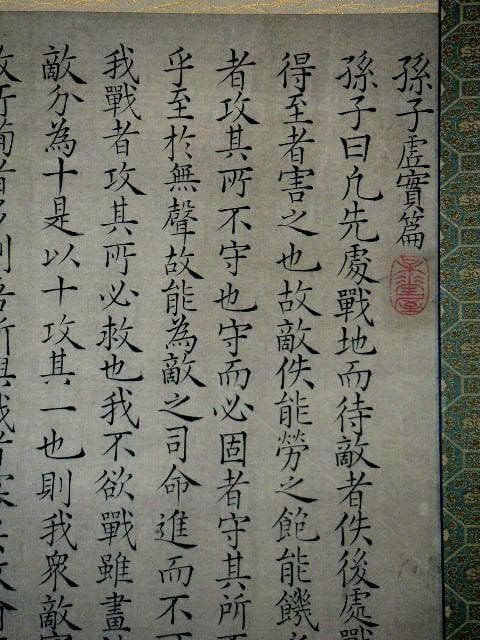 孫子虛實篇
孫子曰凡先處戰地而待敵者佚後處戰
得至者害之也故敵佚能勞之飽能饑
者攻其所不守也守而必固者守其所不
乎至於無聲故能為敵之司命進而不
我戰者攻其所必救也我不欲戰雖畫
敵分為十是以十攻其一也則我眾敵寡
所備者多則吾所與戰者